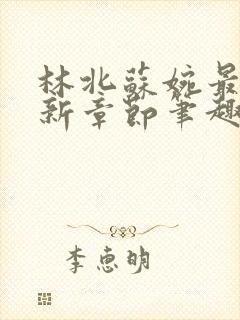 林北蘇婉最
新章節筆趣
李惠明